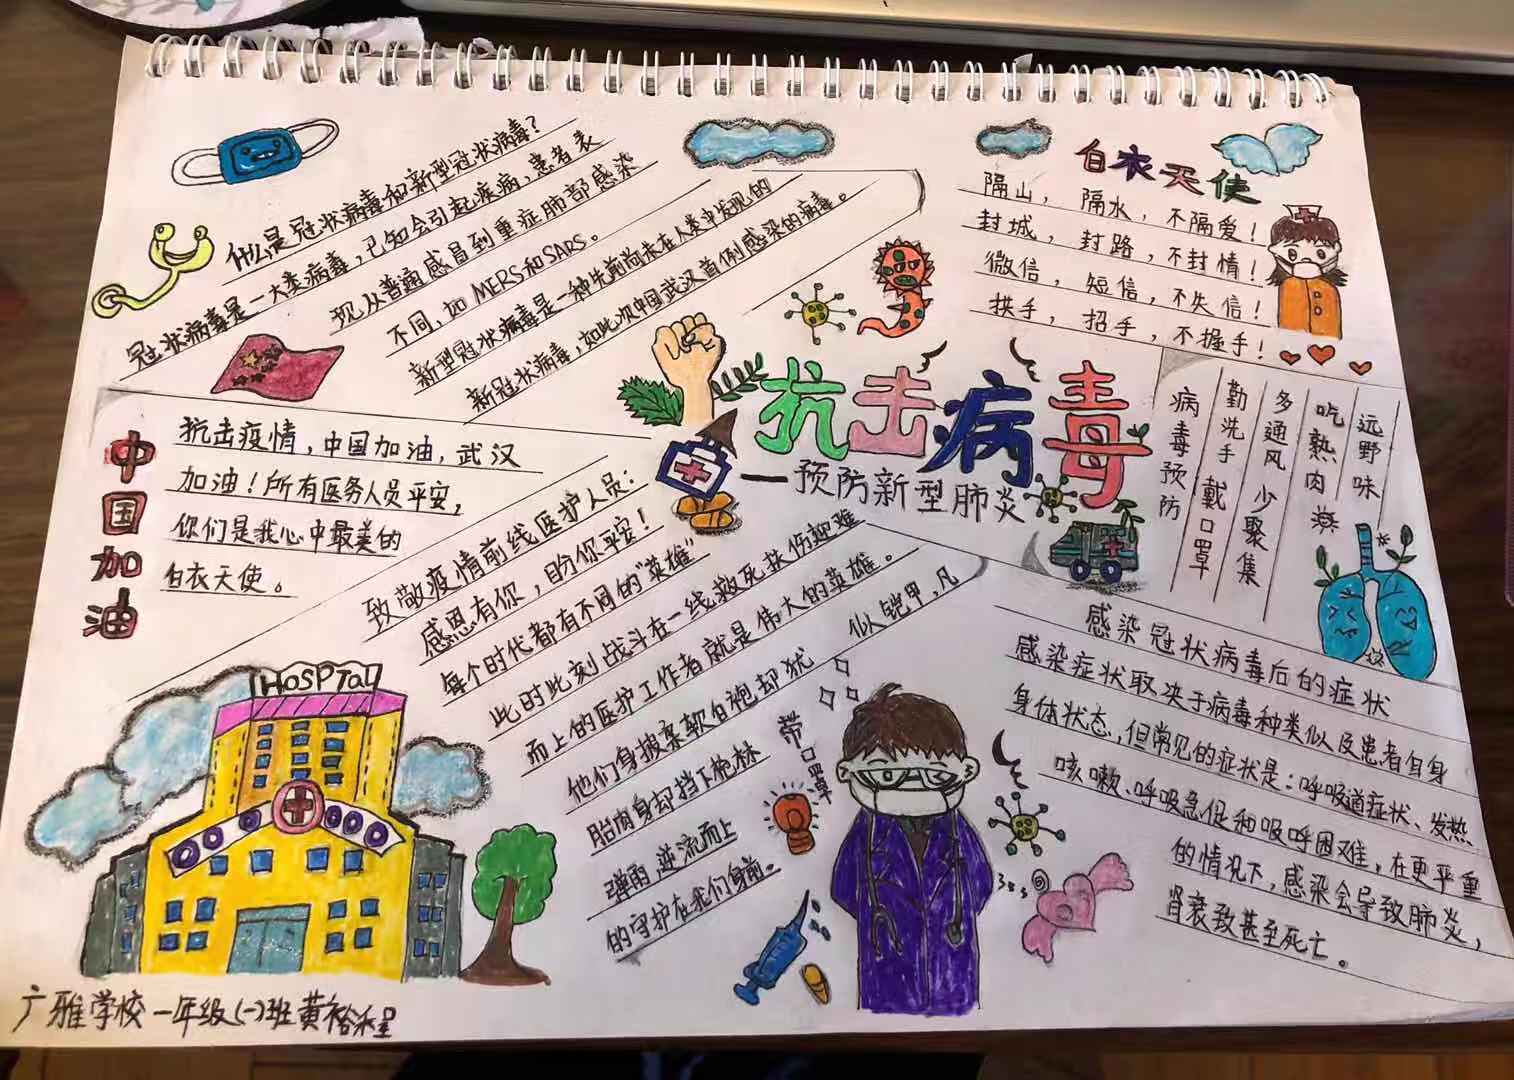 什么是冠状病毒和新型冠状病毒?
冠状病毒是一大类病毒,已知会引起疾病,患者表
现从普通感冒到重症肺部感染
不同,如MERS和SARS。
新型冠状病毒是一种先前尚未在人类中发现的
新冠状病毒,如此次中国武汉首例感染的病毒。
白衣天使
隔山,隔水,不隔爱!
封城,封路,不封情!
微信,短信,不失信!
拱手,招手,不握手!
抗击病毒
—预防新型肺炎
病毒预防
勤洗手 戴口罩
多通风 少聚集
吃熟肉
远野味
中国加油
抗击疫情,中国加油,武汉
加油!所有医务人员平安,
你们是我心中最美的
白衣天使。
致敬疫情前线医护人员:
感恩有你,盼你平安!
每个时代都有不同的"英雄"
此时此刻战斗在一线救死扶伤迎难
而上的医护工作者就是伟大的英雄。
他们身披柔软白袍却犹似铠甲,凡
胎肉身却挡下枪林
弹雨逆流而上
的守护在我们身前。
HOSPITaL
带口罩
感染冠状病毒后的症状
感染症状取决于病毒种类似及患者自身
身体状态,但常见的症状是:呼吸道症状、发热
咳嗽、呼吸急促和吸呼困难,在更严重
的情况下,感染会导致肺炎,
肾衰致甚至死亡。
广雅学校一年级(一)班黄裕程